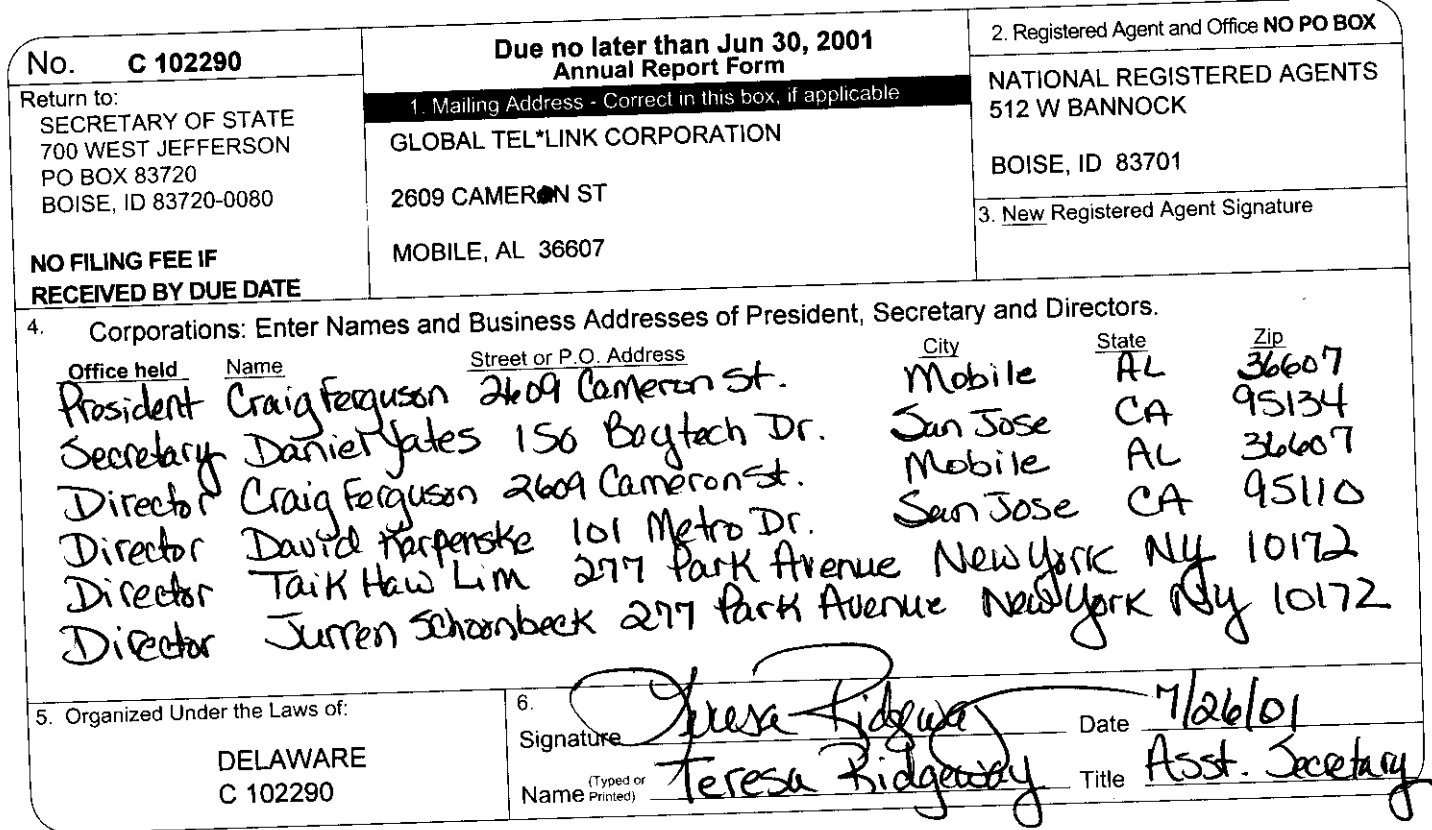 No. C 102290
Return to:
SECRETARY OF STATE
700 WEST JEFFERSON
PO BOX 83720
BOISE, ID 83720-0080
NO FILING FEE IF
RECEIVED BY DUE DATE
Due no later than Jun 30, 2001
Annual Report Form
1. Mailing Address - Correct in this box, if applicable
GLOBAL TEL*LINK CORPORATION
2609 CAMERON ST
MOBILE, AL 36607
2. Registered Agent and Office NO PO BOX
NATIONAL REGISTERED AGENTS
512 W BANNOCK
BOISE, ID 83701
3. New Registered Agent Signature
4. Corporations: Enter Names and Business Addresses of President, Secretary and Directors.
Office held Name Street or P.O. Address City State Zip
President Craig Ferguson 2609 Cameron St. Mobile AL 36607
Secretary Daniel Yates 150 Baytech Dr. San Jose CA 95134
Director Craig Ferguson 2609 Cameron St. Mobile AL 36607
Director David Karpenske 101 Metro Dr. San Jose CA 95110
Director Taik Haw Lim 277 Park Avenue New York NY 10172
Director Jurren Schoonbeck 277 Park Avenue New York NY 10172
5. Organized Under the Laws of:
DELAWARE
C 102290
6.
Signature Teresa Ridgeway Date 7/26/01
Name (Typed or Printed) Teresa Ridgeway Title Asst. Secretary